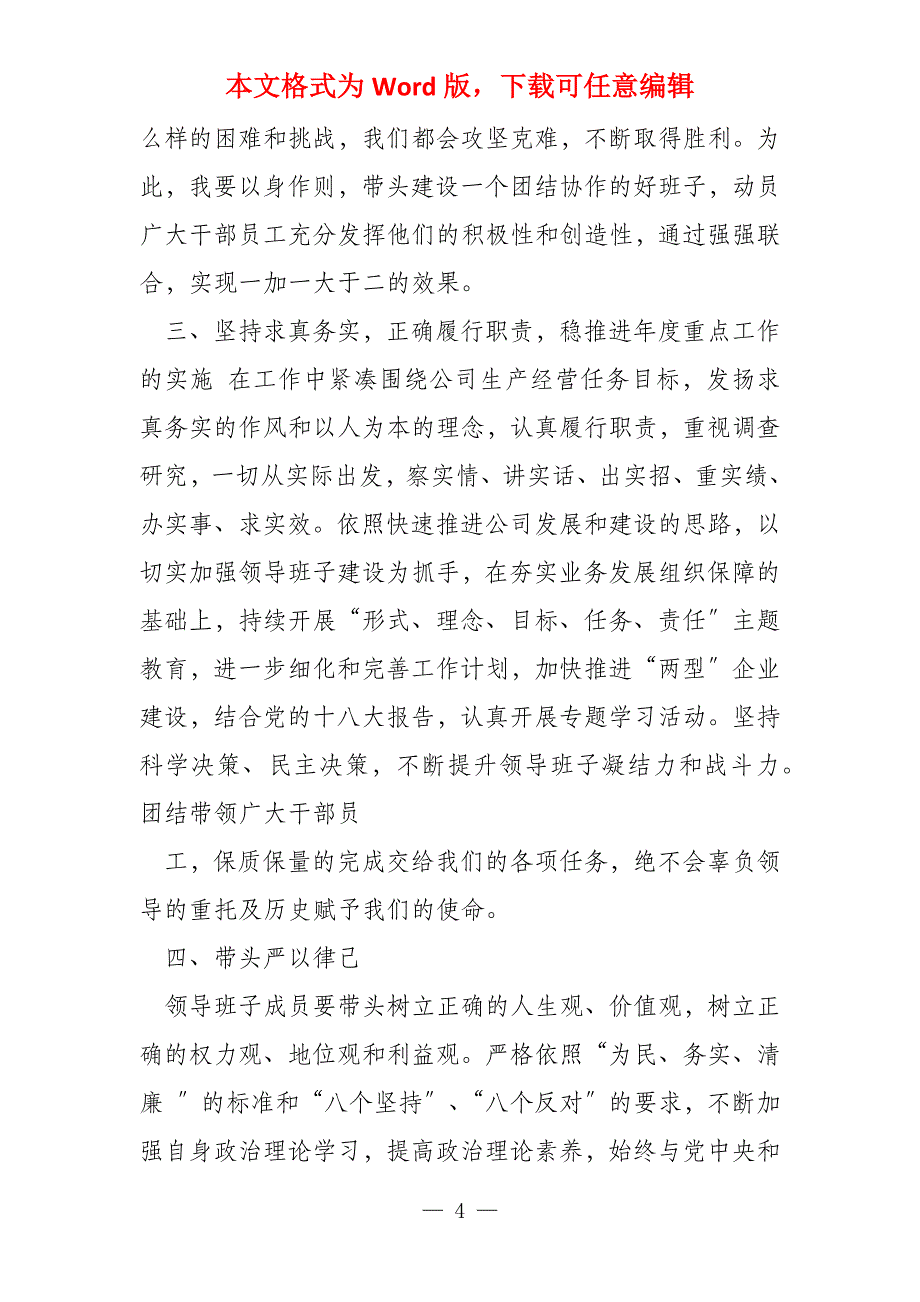 本文格式为 Word 版，下载可任意编辑
么样的困难和挑战，我们都会攻坚克难，不断取得胜利。为
此，我要以身作则，带头建设一个团结协作的好班子，动员
广大干部员工充分发挥他们的积极性和创造性，通过强强联
合，实现一加一大于二的效果。
三、坚持求真务实，正确履行职责，稳推进年度重点工作
的实施 在工作中紧凑围绕公司生产经营任务目标，发扬求
真务实的作风和以人为本的理念，认真履行职责，重视调查
研究，一切从实际出发，察实情、讲实话、出实招、重实绩、
办实事、求实效。依照快速推进公司发展和建设的思路，以
切实加强领导班子建设为抓手，在夯实业务发展组织保障的
基础上，持续开展“形式、理念、目标、任务、责任〞主题
教育，进一步细化和完善工作计划，加快推进“两型〞企业
建设，结合党的十八大报告，认真开展专题学习活动。坚持
科学决策、民主决策，不断提升领导班子凝结力和战斗力。
团结带领广大干部员
工，保质保量的完成交给我们的各项任务，绝不会辜负领
导的重托及历史赋予我们的使命。
四、带头严以律己
领导班子成员要带头树立正确的人生观、价值观，树立正
确的权力观、地位观和利益观。严格依照“为民、务实、清
廉 〞的标准和“八个坚持〞、“八个反对〞的要求，不断加
强自身政治理论学习，提高政治理论素养，始终与党中央和
— 4 —